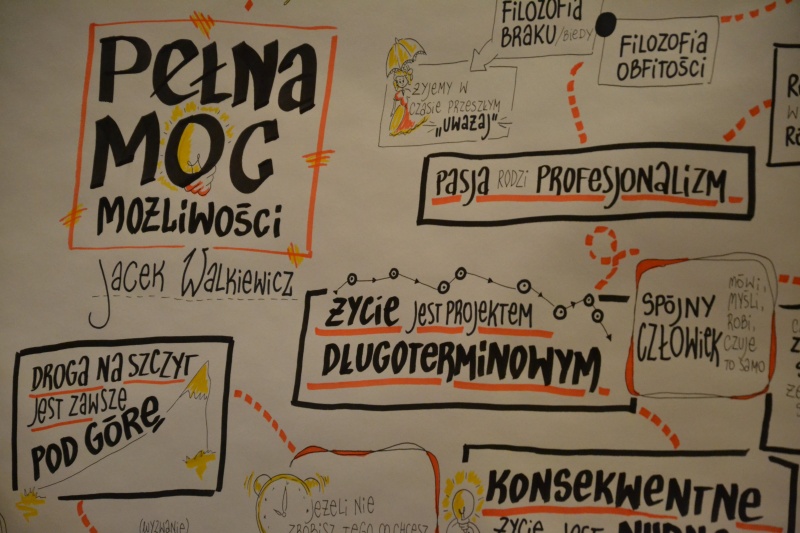 PEŁNA
MOC
MOŻLIWOŚCI
Jacek Walkiewicz
FILOZOFIA
BRAKU/BIEDY
FILOZOFIA
OBFITOŚCI
ŻYJEMY W
CZASIE PRZESZŁYM
„UWAŻAJ”
PASJA RODZI PROFESJONALIZM
ŻYCIE JEST PROJEKTEM
DŁUGOTERMINOWYM
SPÓJNY
CZŁOWIEK
MÓWI,
MYŚLI,
ROBI,
CZUJE
TO SAMO
DROGA NA SZCZYT
JEST ZAWSZE
POD GÓRĘ
(WYZWANIE)
JEŻELI NIE
ZROBISZ TEGO CO CHCESZ
KONSEKWENTNE
ŻYCIE JEST NUDNE